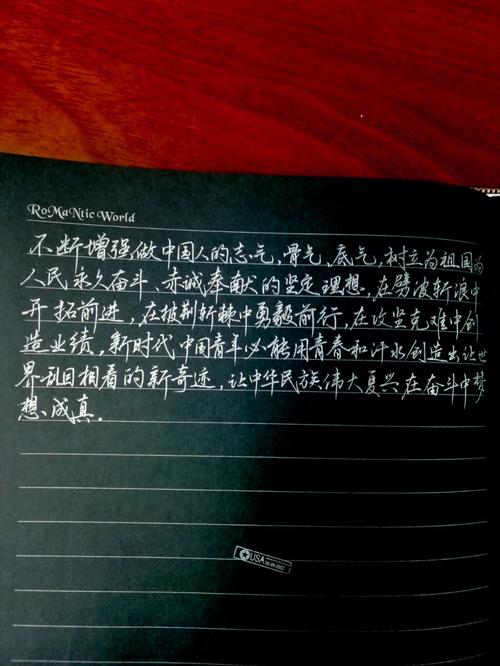 RoMaNtic World
不断增强做中国人的志气,骨气,底气,树立为祖国为
人民永久奋斗、赤诚奉献的坚定理想,在劈波斩浪中
开拓前进,在披荆斩棘中勇毅前行,在攻坚克难中创
造业绩,新时代中国青年必能用青春和汗水创造出让世
界刮目相看的新奇迹,让中华民族伟大复兴在奋斗中梦
想成真.
USA